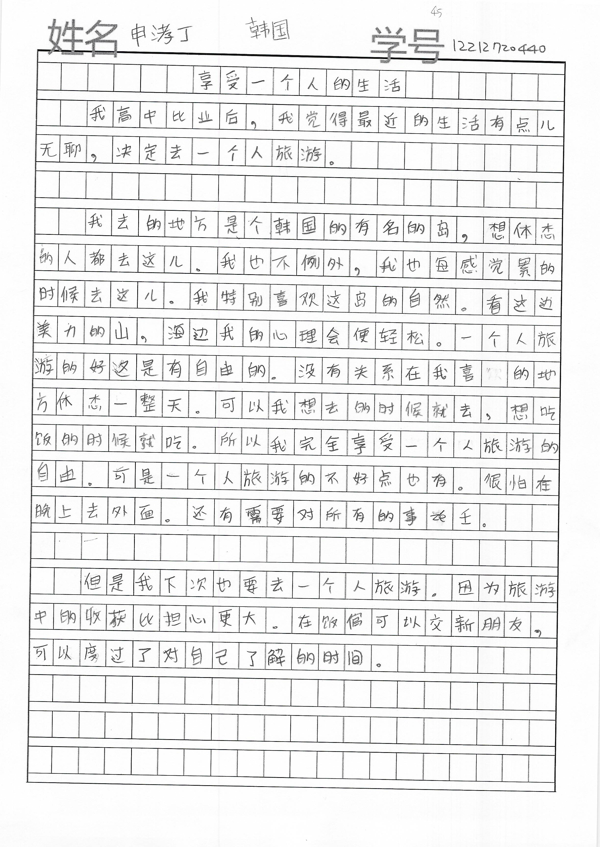 45
姓名 申涍丁 韩国 学号 12212720440
享受一个人的生活
我高中比业后，我觉得最近的生活有点儿
无聊，决定去一个人旅游。
我去的地方是个韩国的有名的岛，想休杰
的人都去这儿。我也不例外，我也每感觉累的
时候去这儿。我特别喜欢这岛的自然。看这边
美力的山，海边我的心理会便轻松。一个人旅
游的好这是有自由的。没有关系在我喜欢的地
方休杰一整天。可以我想去的时候就去，想吃
饭的时候就吃。所以我完全享受一个人旅游的
自由。可是一个人旅游的不好点也有。很怕在
晚上去外面。还有需要对所有的事 壬。
但是我下次也要去一个人旅游。因为旅游
中的收获比担心更大。在饭宿可以交新朋友，
可以度过了对自己了解的时间。